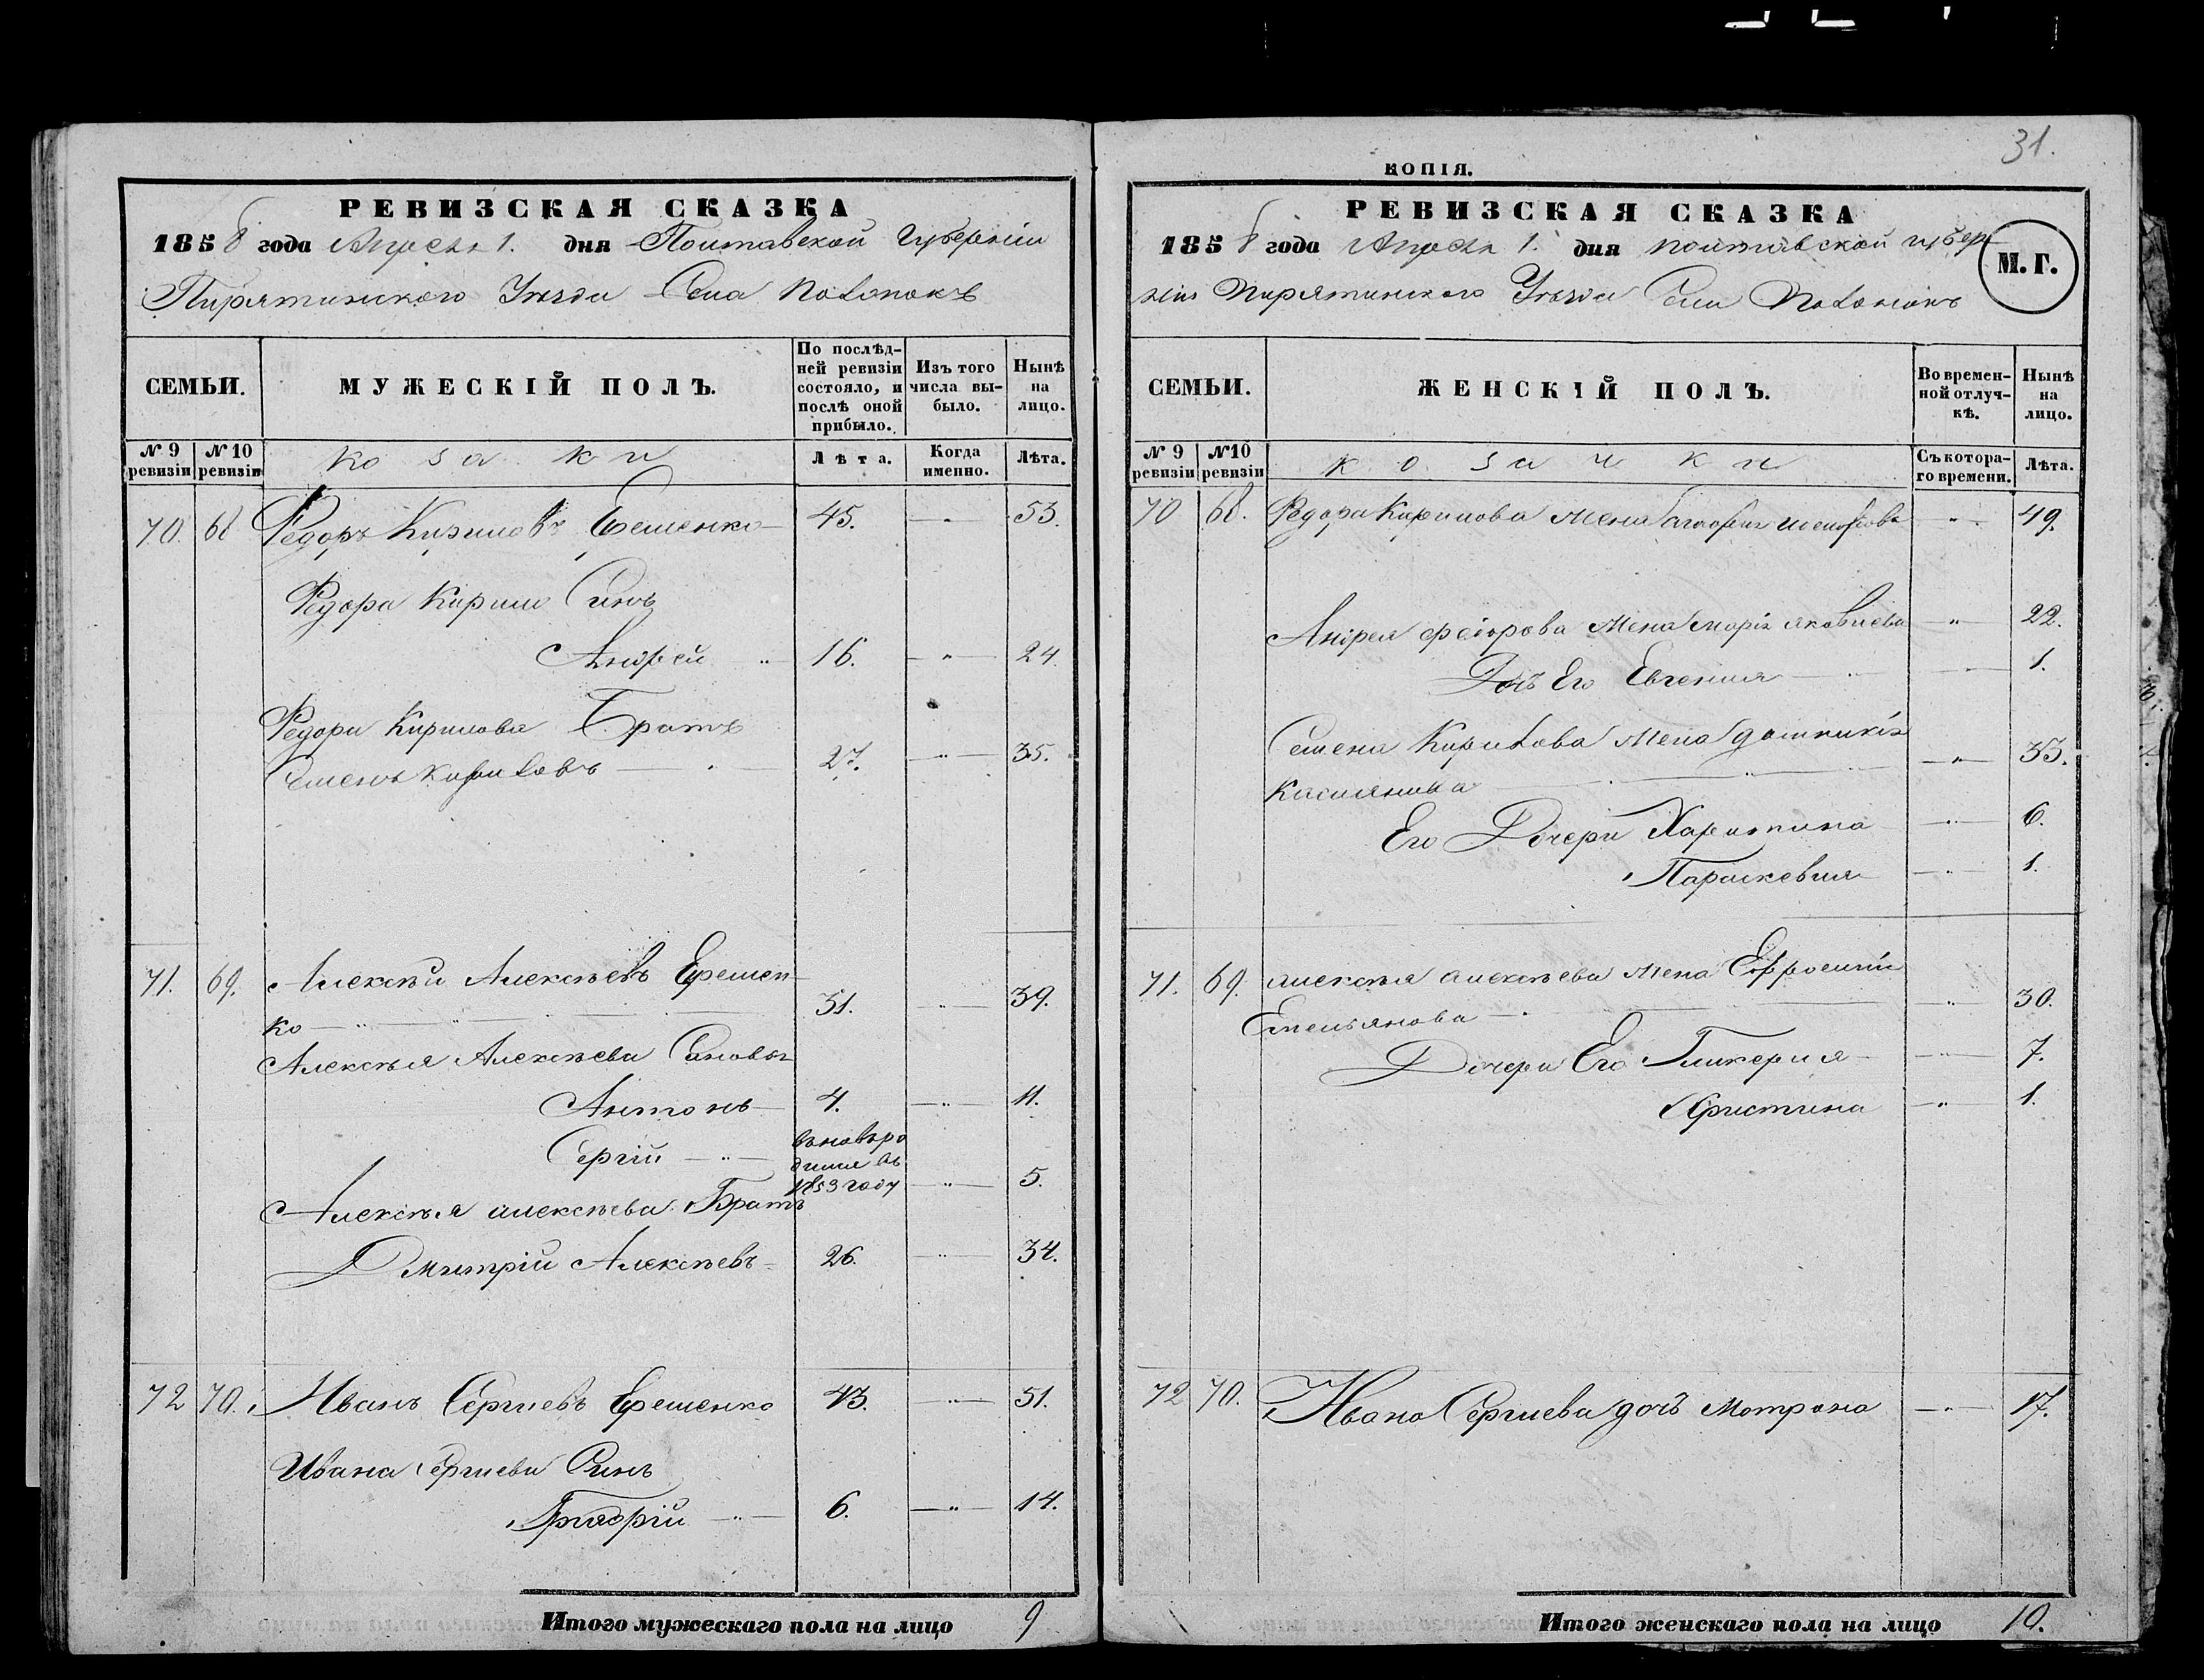 РЕВИЗСКАЯ СКАЗКА
1858 года Апреля 1. дня Полтавской Губернии
Пирятинского Уезда Села
СЕМЬИ.
МУЖЕСКІЙ ПОЛЪ.
По послѣд-
ней ревизіи
состояло, и
послѣ оной
прибыло.
Изъ того
числа вы-
было.
Нынѣ
на
лицо.
№ 9
ревизіи
№ 10
ревизіи
козаки
Лѣта.
Когда
именно.
Лѣта.
70. 68 Федоръ Кириловъ Ерешенко 45. — " — 53.
Федора Кирило Синъ
Андрей " 16. — " — 24.
Федора Кирилова Братъ
Семенъ Кириловъ — " — 27. — " — 35.
71. 69. Алексѣй Алексѣевъ Ерешен
ко — " — 31. — " — 39.
Алексѣя Алексѣева Сыновья
Антонъ 4. — " — 11.
Сергій — " — вновьро
дился въ
1853 году — " — 5.
Алексѣя алексѣева Братъ
Дмитрій Алексѣевъ 26. — " — 34.
72 70. Иванъ Сергиевъ Ерешенко 43. — " — 51.
Ивана Сергиева Синъ
Григорій — " — 6. — " — 14.
Итого мужескаго пола на лицо 9
31.
КОПІЯ.
РЕВИЗСКАЯ СКАЗКА
1858 года Апреля 1. дня полтавской губер
М. Г.
ніи Пирятинского Уезда Села
СЕМЬИ.
ЖЕНСКІЙ ПОЛЪ.
Во времен-
ной отлуч-
кѣ.
Нынѣ
на
лицо.
№ 9
ревизіи
№10
ревизіи
козачки
Съ котора-
го времени.
Лѣта.
70 68. Федора Кирилова Жена — " — 49.
Андрея федорова Жена Марія яковлева " 22.
Дочъ Его Евгения — " — 1.
Семена Кирилова Жена
Касиянова — " — 33.
Его Дочери Харитина — " — 6.
Параскевия — " — 1.
71. 69. алексѣя алексѣева Жена Ефросинія
Емельянова — " — 30.
Дочери Его Гликерия — " — 7.
Христина — " — 1.
72 70. Ивана Сергиева дочъ Мотрона — " — 17.
Итого женскаго пола на лицо 10.